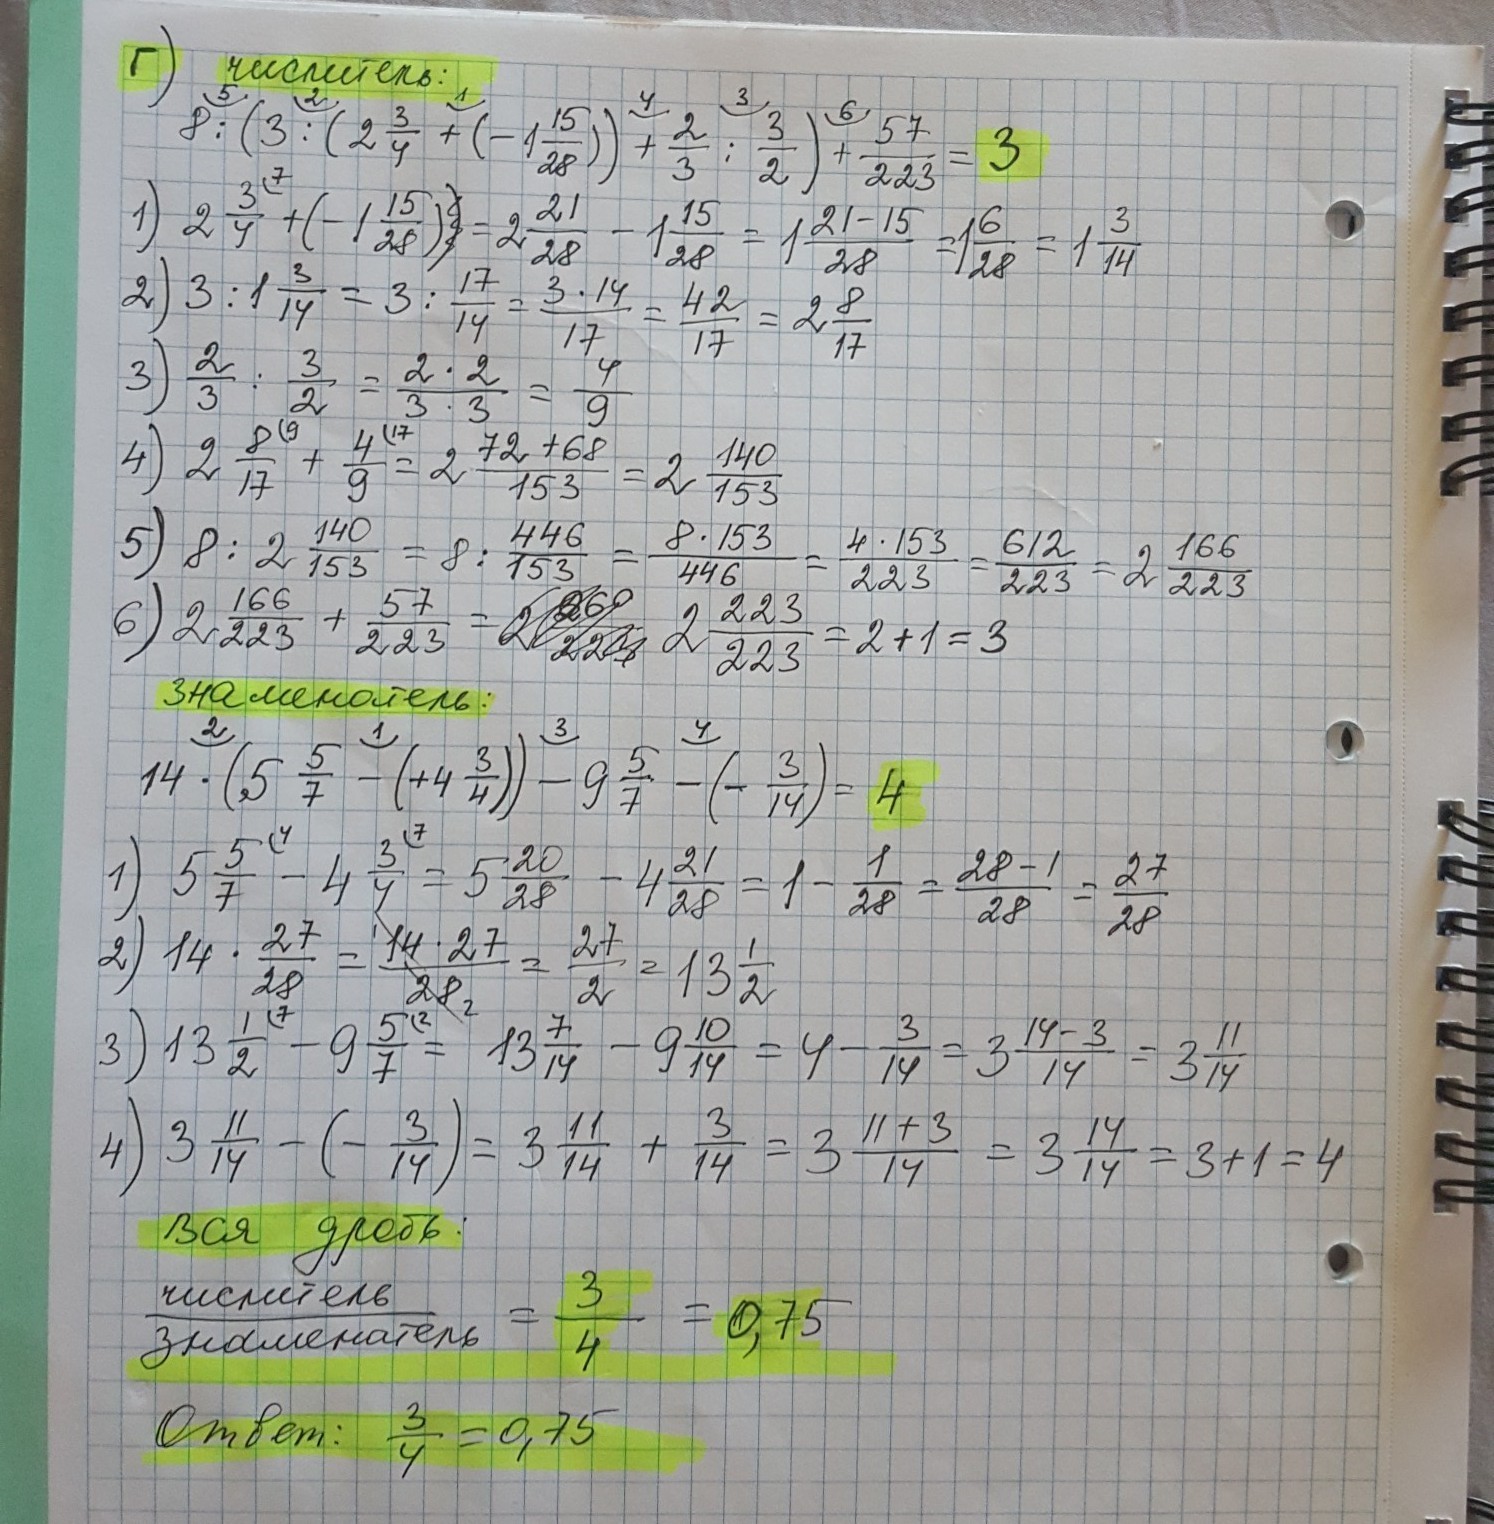 г) числитель:
8 : (3 : (2 3/4 + (−1 15/28)) + 2/3 : 3/2) + 57/223 = 3
1) 2 3/4 + (−1 15/28) = 2 21/28 − 1 15/28 = 1 21−15/28 = 1 6/28 = 1 3/14
2) 3 : 1 3/14 = 3 : 17/14 = 3·14/17 = 42/17 = 2 8/17
3) 2/3 : 3/2 = 2·2/3·3 = 4/9
4) 2 8/17 + 4/9 = 2 72+68/153 = 2 140/153
5) 8 : 2 140/153 = 8 : 446/153 = 8·153/446 = 4·153/223 = 612/223 = 2 166/223
6) 2 166/223 + 57/223 = 2 223/223 = 2+1 = 3
знаменатель:
14 · (5 5/7 − (+4 3/4)) − 9 5/7 − (− 3/14) = 4
1) 5 5/7 − 4 3/4 = 5 20/28 − 4 21/28 = 1 − 1/28 = 28−1/28 = 27/28
2) 14 · 27/28 = 14·27/28 = 27/2 = 13 1/2
3) 13 1/2 − 9 5/7 = 13 7/14 − 9 10/14 = 4 − 3/14 = 3 14−3/14 = 3 11/14
4) 3 11/14 − (− 3/14) = 3 11/14 + 3/14 = 3 11+3/14 = 3 14/14 = 3+1 = 4
вся дробь:
числитель/знаменатель = 3/4 = 0,75
Ответ: 3/4 = 0,75